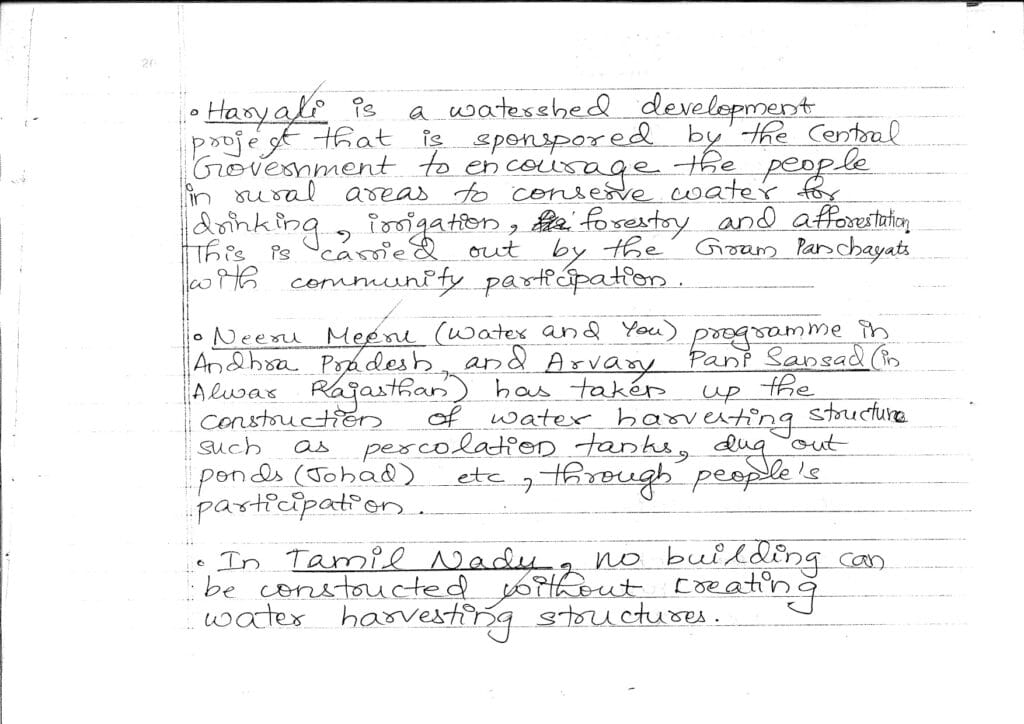 • Haryali is a watershed development
project that is sponspored by the Central
Government to encourage the people
in rural areas to conserve water for
drinking, irrigation, forestry and afforestation
This is carried out by the Gram Panchayats
with community participation.
• Neeru Meeru (Water and You) programme in
Andhra Pradesh, and Arvary Pani Sansad (in
Alwar Rajasthan) has taken up the
construction of water harvesting structure
such as percolation tanks, dug out
ponds (Johad) etc, through people's
participation.
• In Tamil Nadu, no building can
be constructed without creating
water harvesting structures.